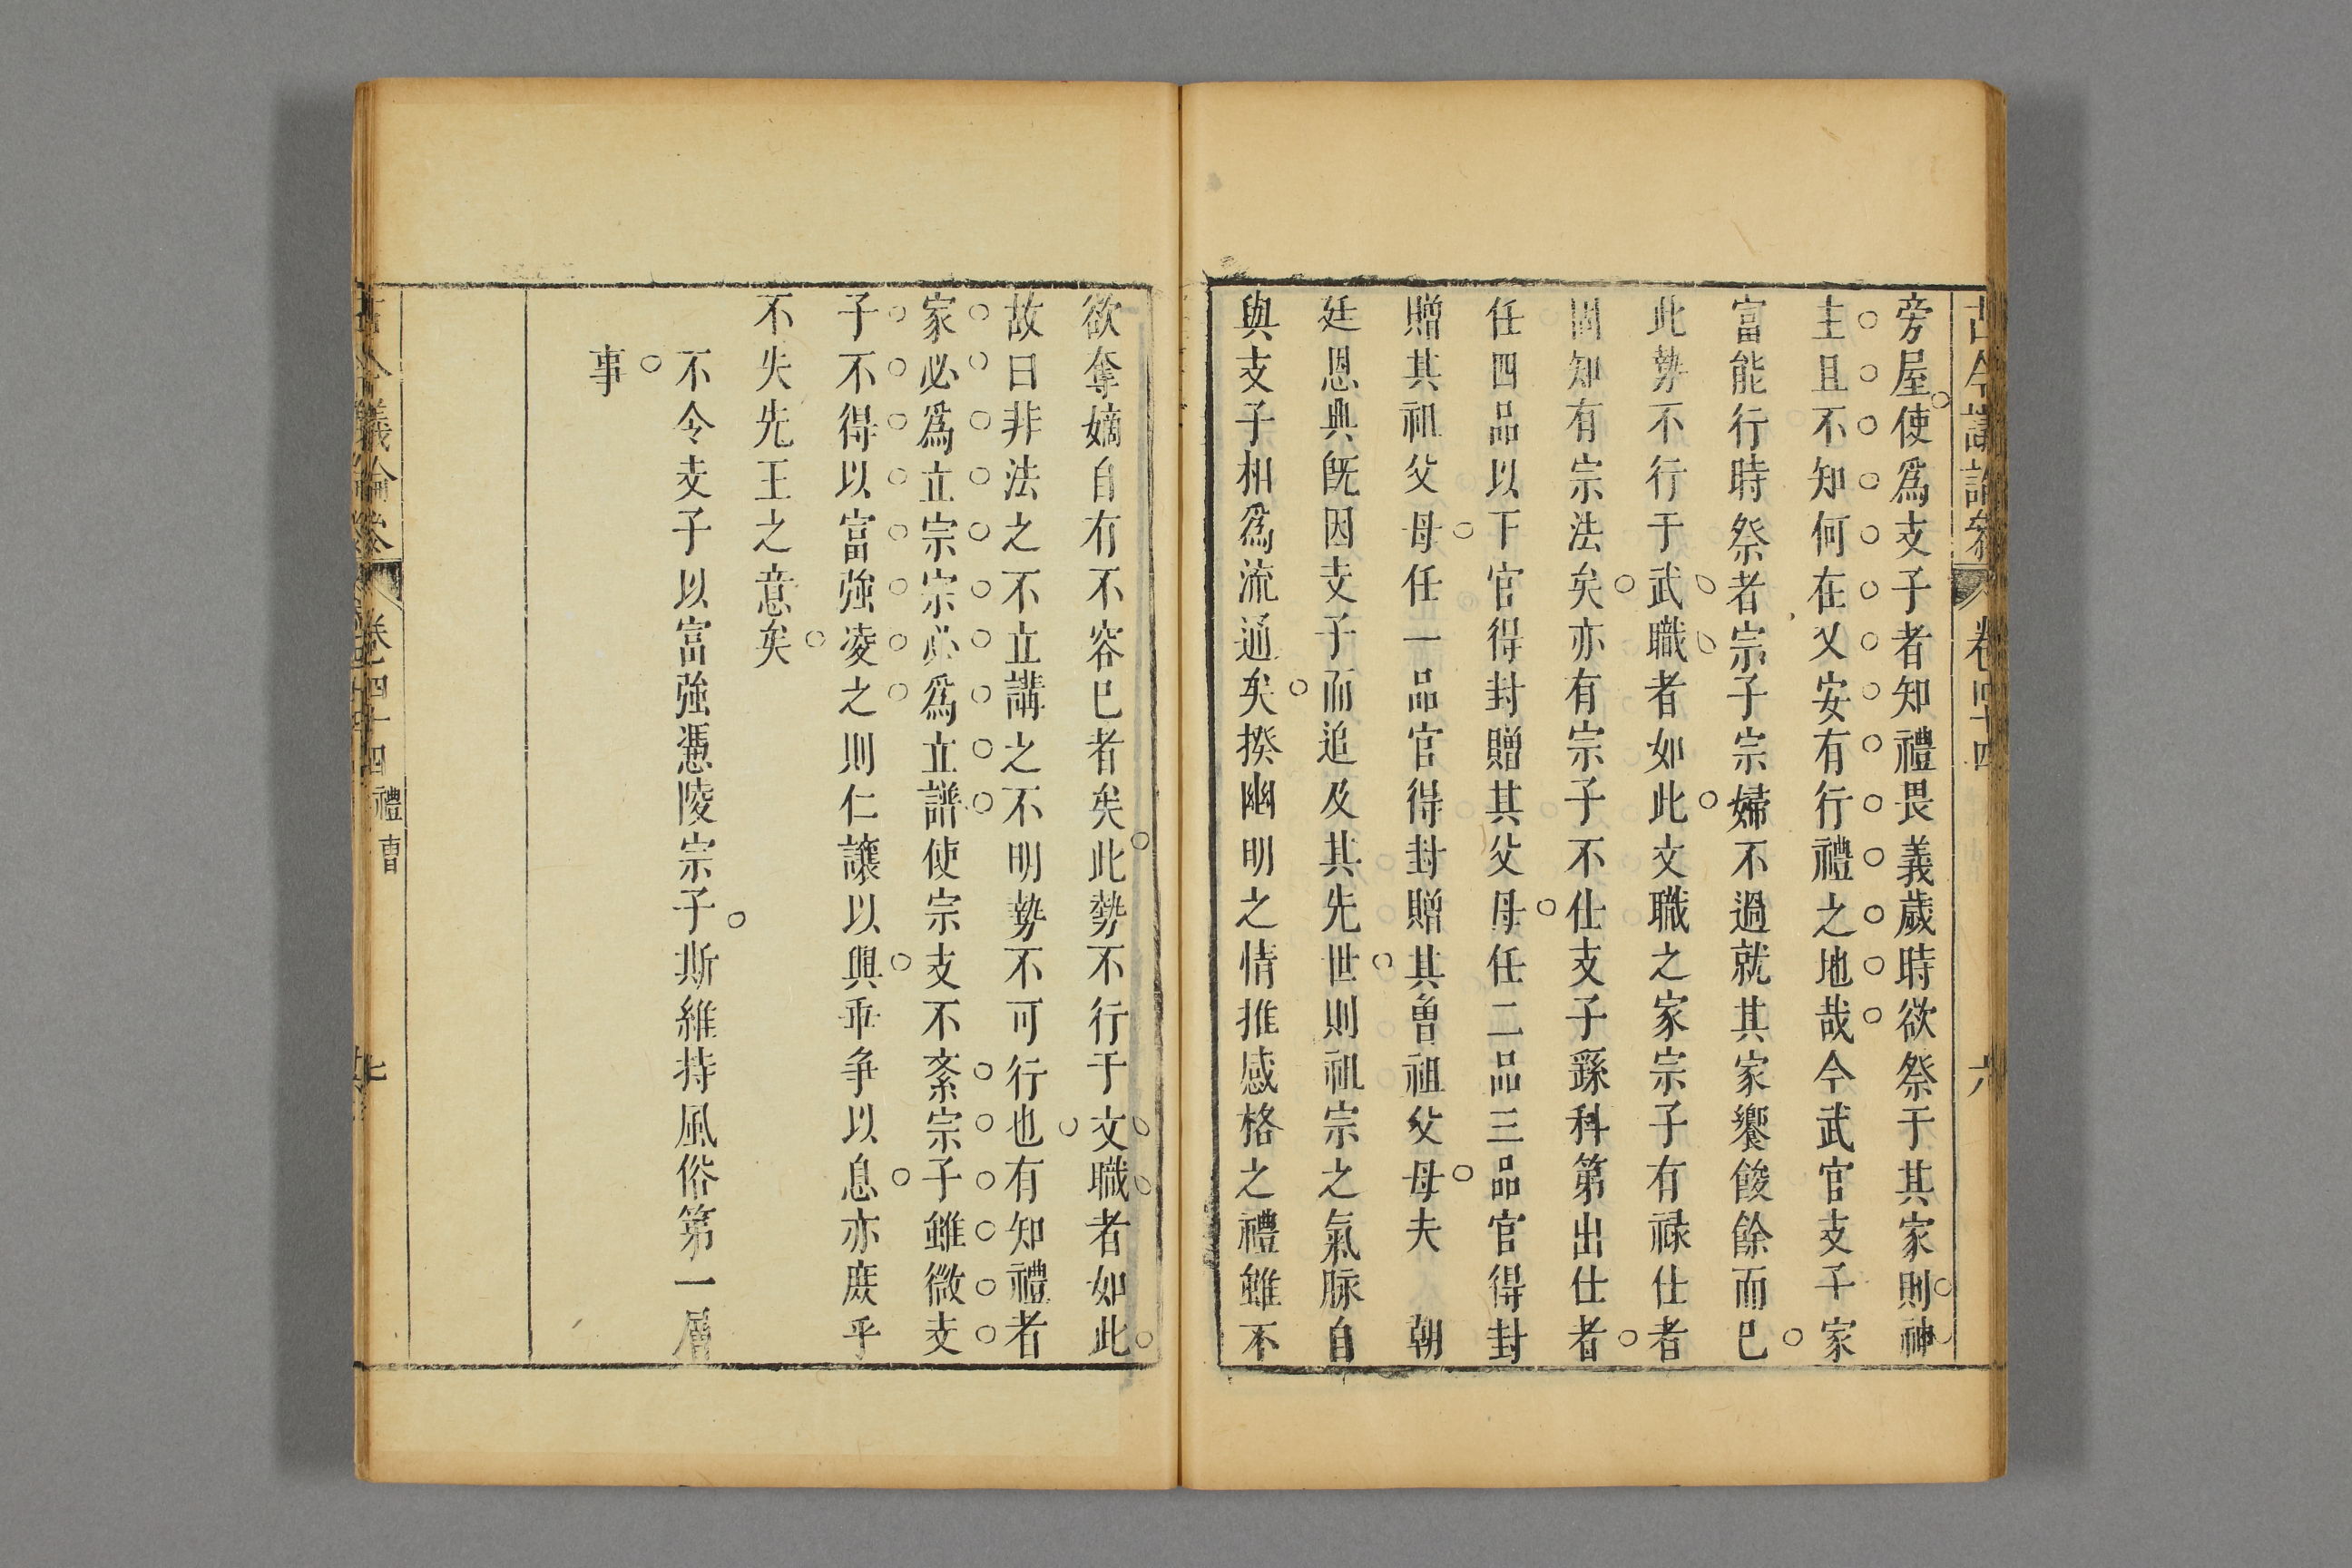 古今議論參 卷四十四 六
旁屋使爲支子者知禮畏義歲時欲祭于其家則神
主且不知何在又安有行禮之地哉今武官支子家
富能行時祭者宗子宗婦不過就其家饗餕餘而已
此勢不行于武職者如此文職之家宗子有祿仕者
固知有宗法矣亦有宗子不仕支子孫科第出仕者
任四品以下官得封贈其父母任二品三品官得封
贈其祖父母任一品官得封贈其曾祖父母夫 朝
廷恩典旣因支子而追及其先世則祖宗之氣脉自
與支子相爲流通矣揆幽明之情推感格之禮雖不
欲奪嫡自有不容已者矣此勢不行于文職者如此
故曰非法之不立講之不明勢不可行也有知禮者
家必爲立宗宗必爲立譜使宗支不紊宗子雖微支
子不得以富強凌之則仁讓以興乖爭以息亦庶乎
不失先王之意矣
不令支子以富強憑陵宗子斯維持風俗第一層
事
古今議論參 卷四十四 禮曹 七